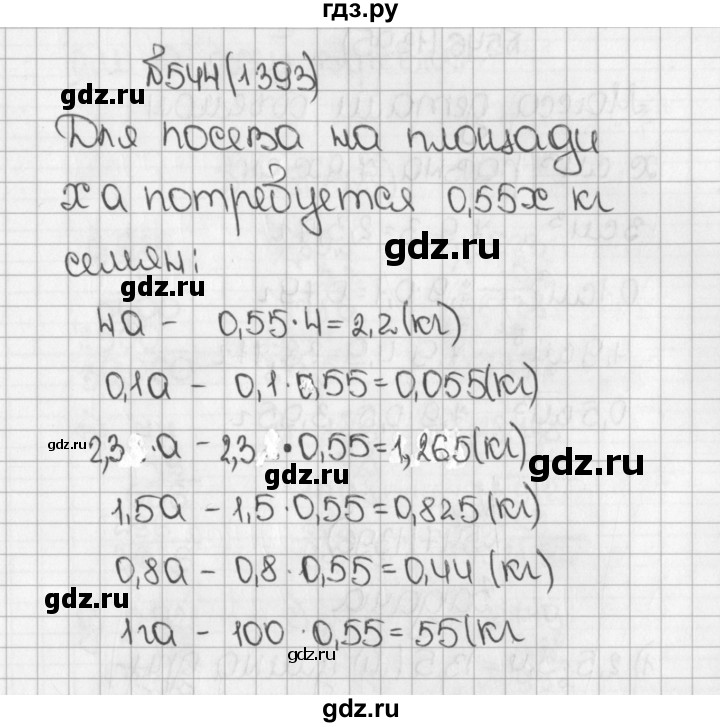 гдз.ру
№544(1393)
gdz.ru
Для посева на площади
x а потребуется 0,55x кг
gdz.ru
семян:
gdz.ru
4а - 0,55·4=2,2(кг)
0,1а - 0,1·0,55=0,055(кг)
gdz.ru
2,3·а - 2,3·0,55=1,265(кг)
gdz.ru
gdz.ru
1,5а - 1,5·0,55=0,825(кг)
0,8а - 0,8·0,55=0,44 (кг)
gdz.ru
1га - 100·0,55=55(кг
gdz.ru
gdz.ru